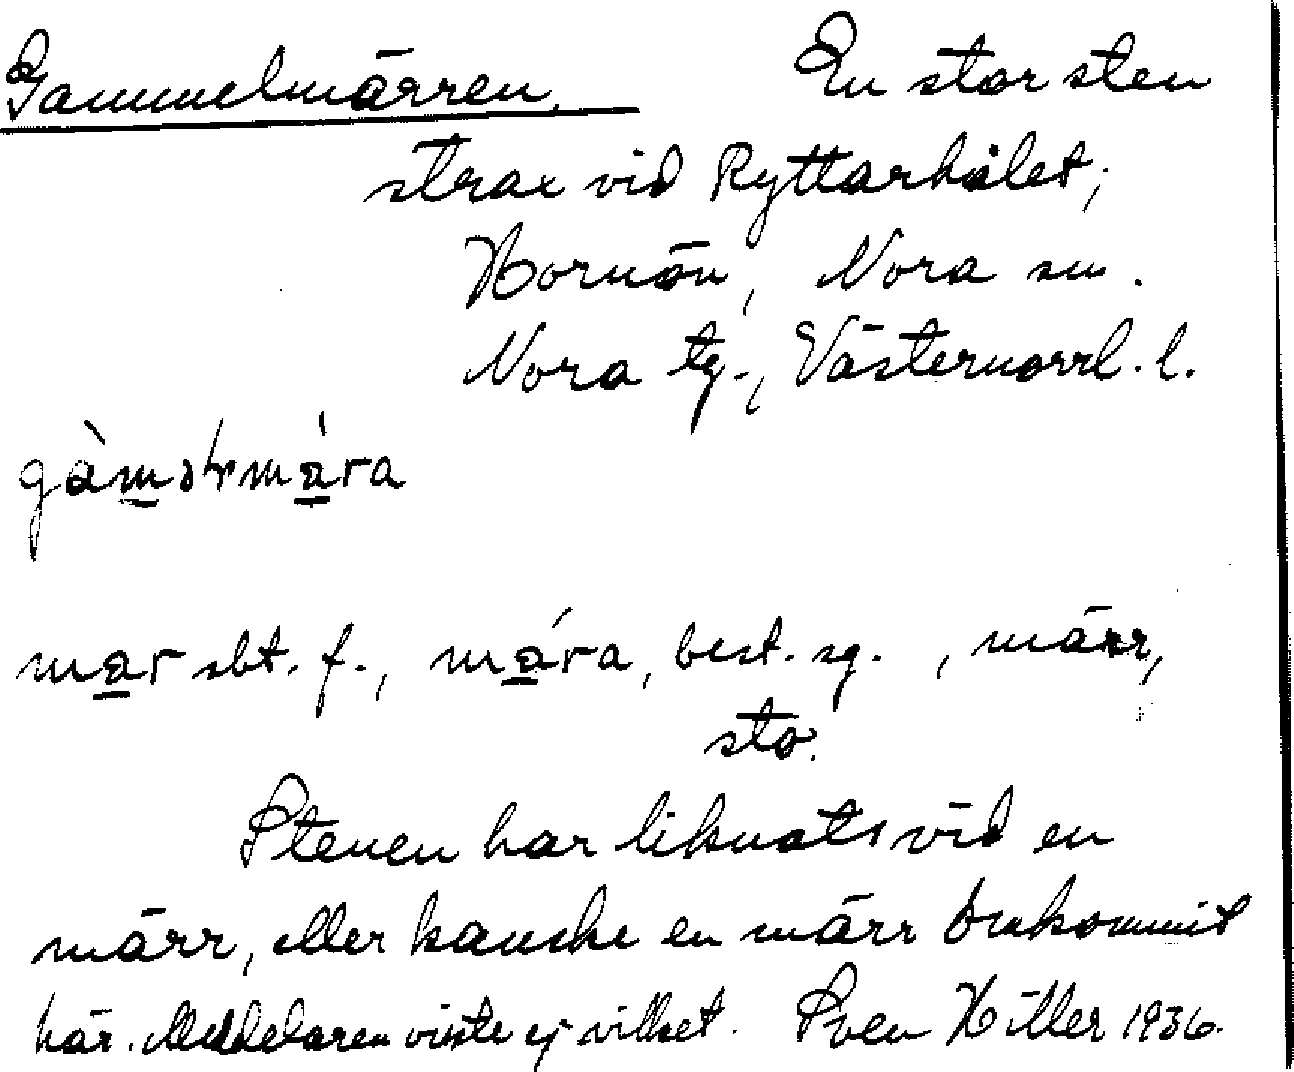 Gammelmärren. En stor sten
strax vid Ryttarhålet,
Hornön, Nora sn.
Nora tg., Västernorrl. l.
gàməlmára
mar sbt. f., mára, best. sg., märr,
sto.
Stenen har liknats vid en
märr, eller kanske en märr omkommit
här. Meddelaren visste ej vilket. Sven Hiller 1936.